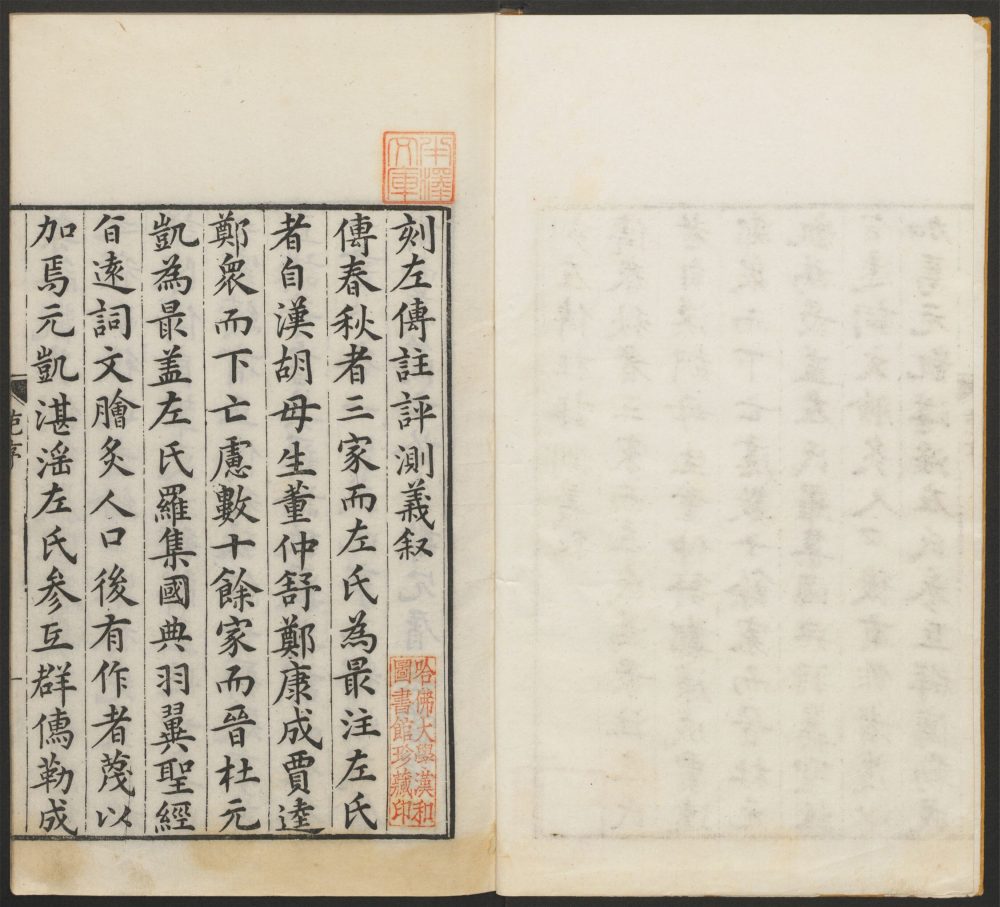 刻左傳註評測義叙
傳春秋者三家而左氏為最注左氏
者自漢胡毋生董仲舒鄭康成賈逵
鄭衆而下亡慮數十餘家而晉杜元
凱為最盖左氏羅集國典羽翼聖經
旨遠詞文膾炙人口後有作者蔑以
加焉元凱湛滛左氏参互群儒勒成
序
一
哈佛大學漢和
圖書館珍藏印
文庫